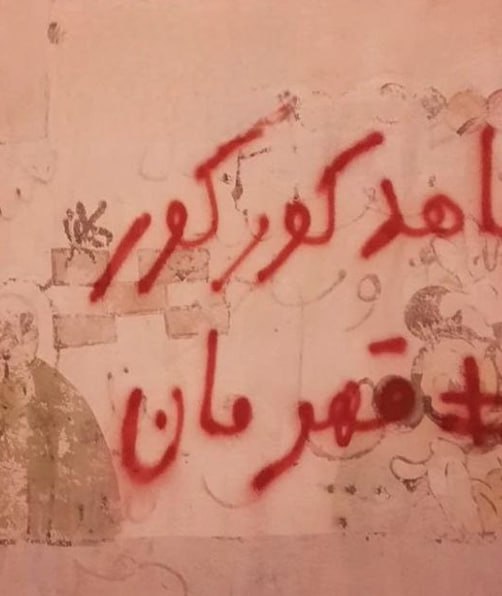 اهد کور کور
# قهرمان